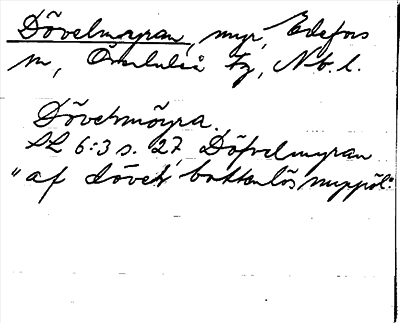 Dövelmyran, myr, Edefors
sn, Överluleå tg, Nb. l.
Dövelmöyra.
SL 6:3 s. 27 Döfvelmyran
"af dövel, bottenlös myrpöl."